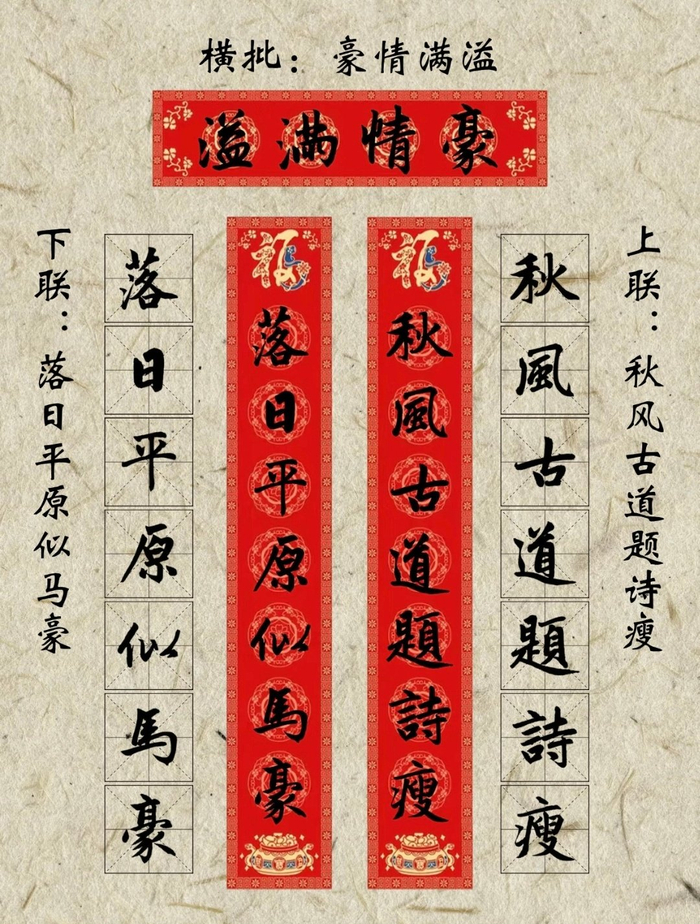 横批：豪情满溢
溢满情豪
上联：秋风古道题诗瘦
秋風古道題詩瘦
福秋風古道題詩瘦
福落日平原似馬豪
落日平原似馬豪
下联：落日平原似马豪